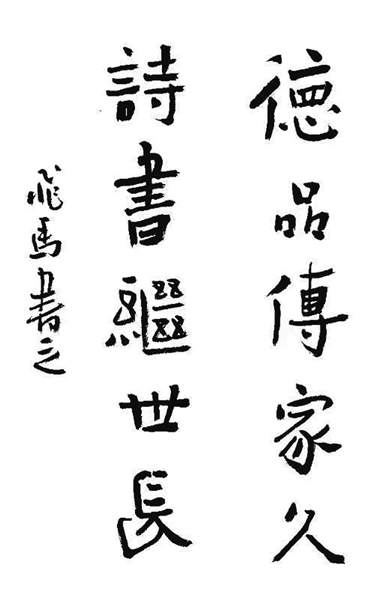 德品傳家久
詩書繼世長
飛馬書之